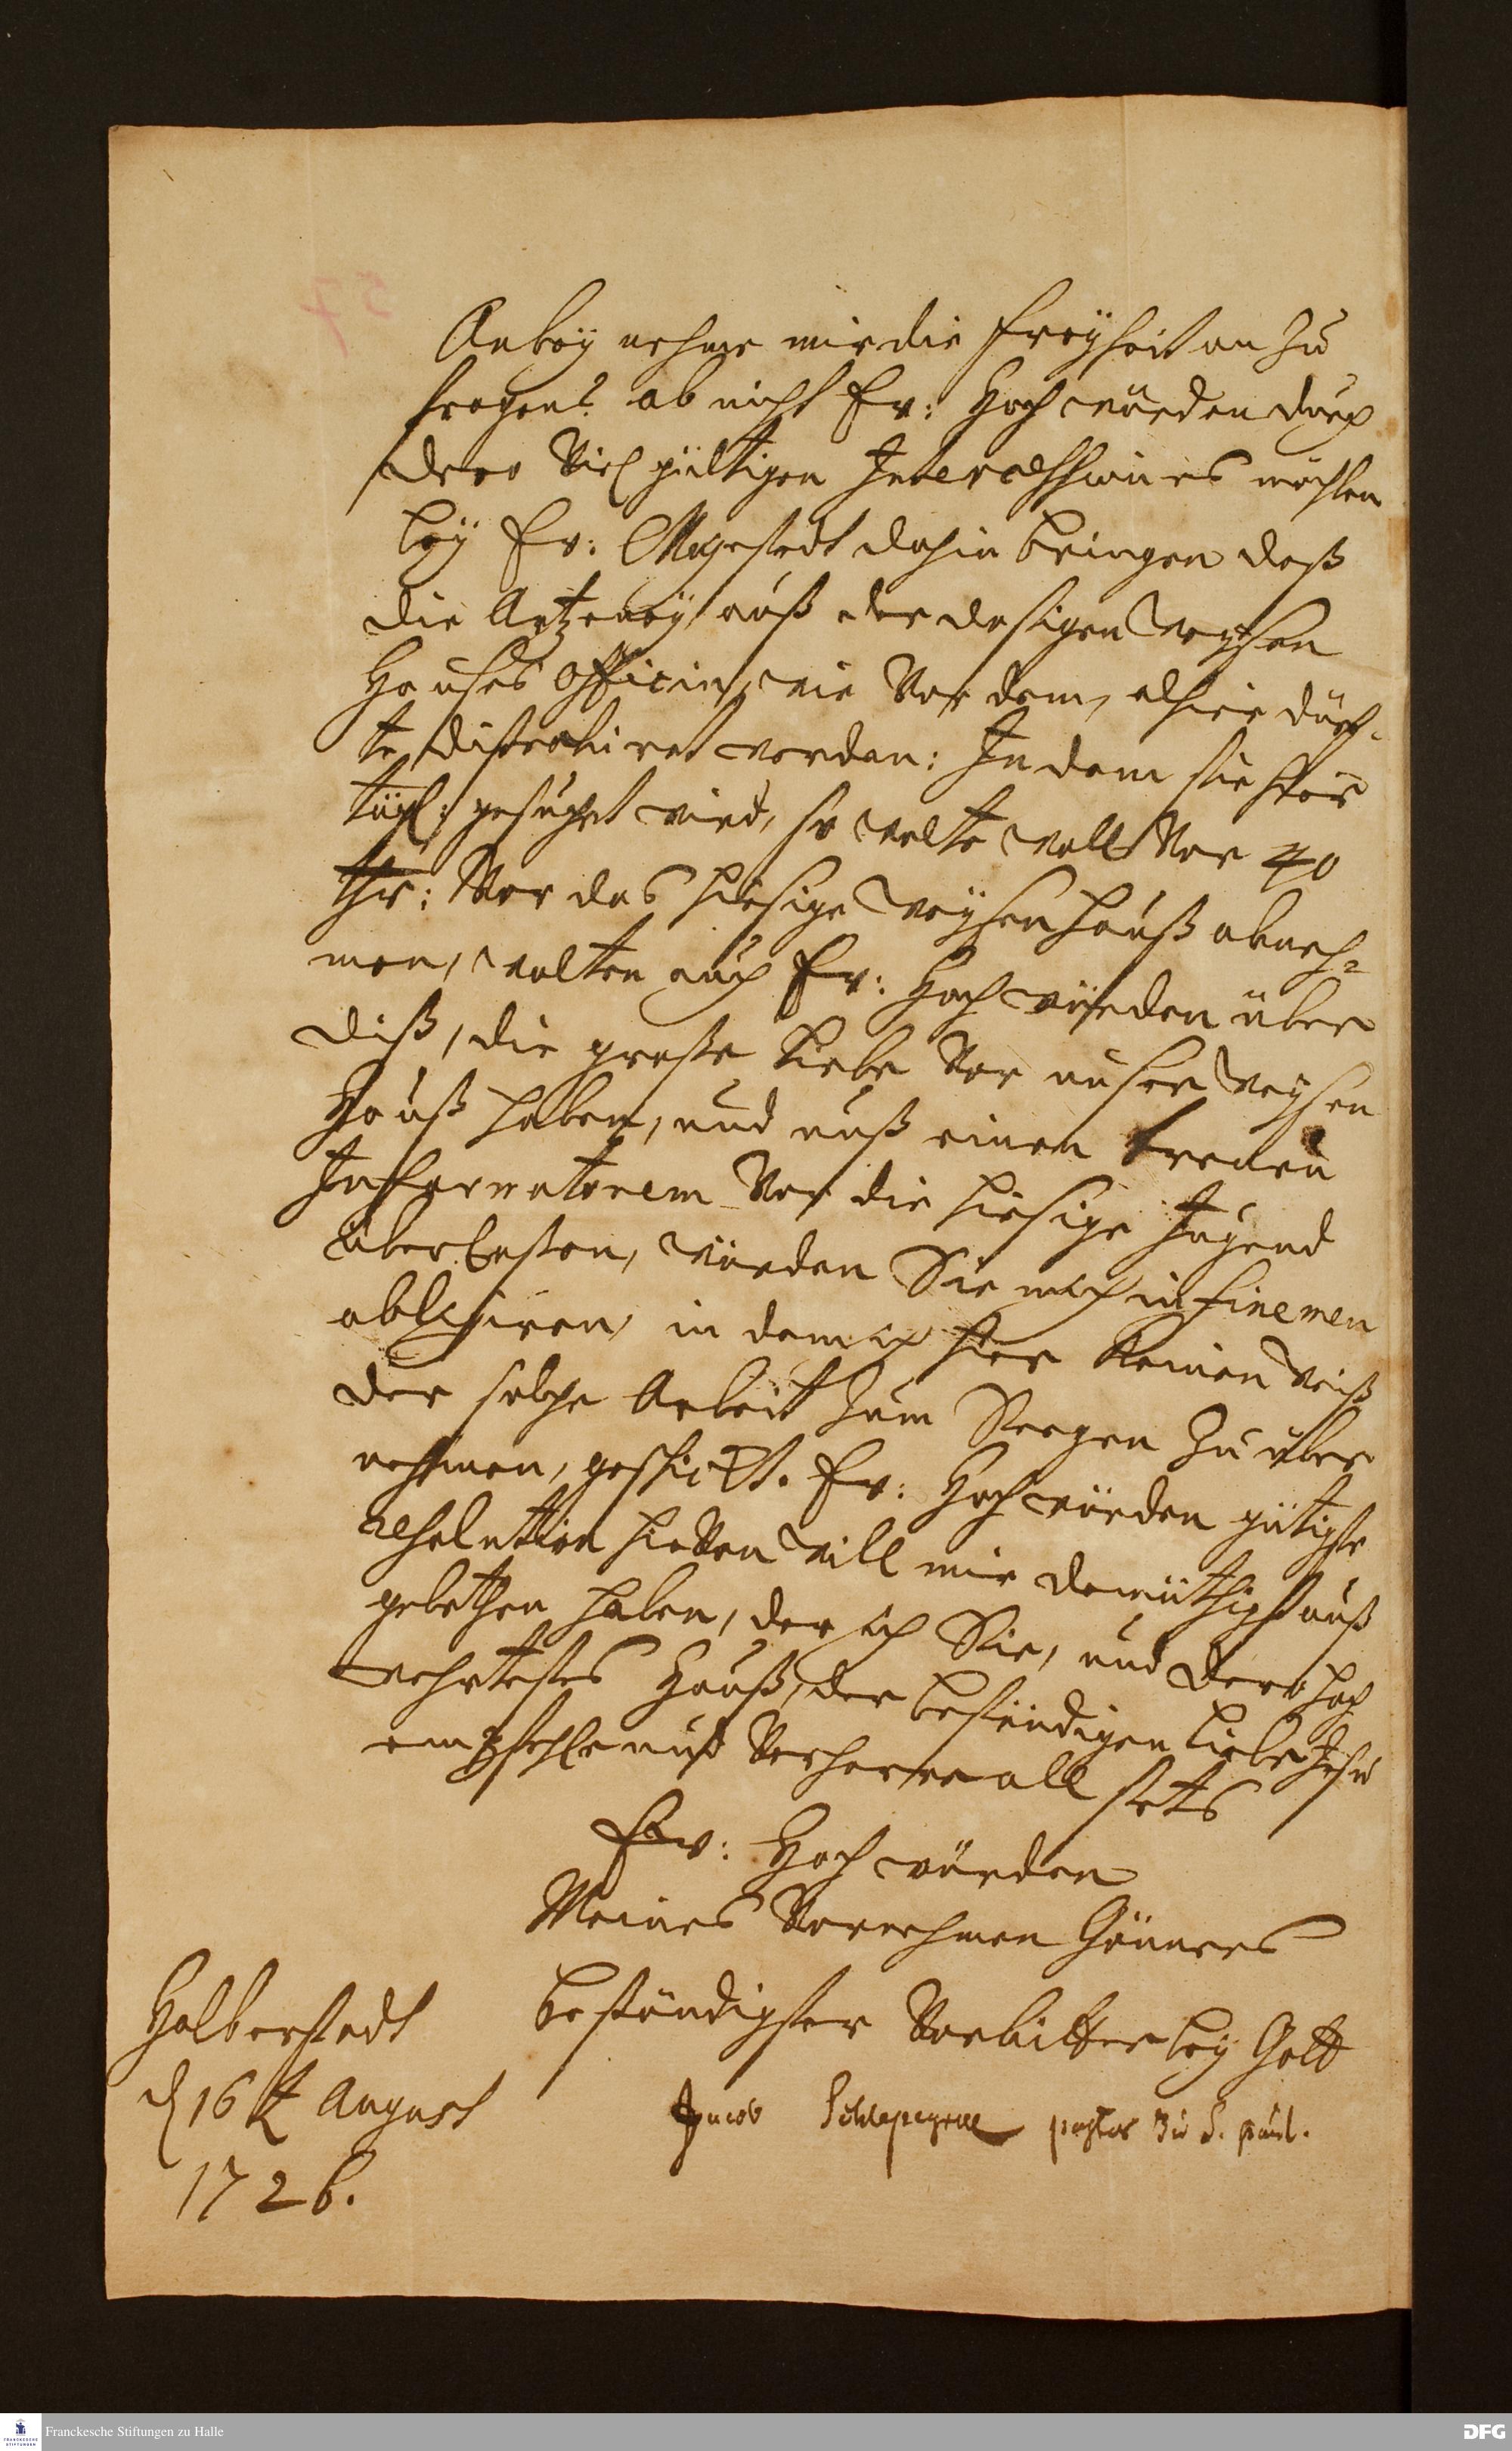 Anbeÿ nehme mir die Freÿheit an zu
fragen? ob nicht Ew: Hochwürden durch
dero Vielgültigen Intercession es möchten
beÿ Er: Majestedt dahin bringen daß
die Artzeneÿ auß der dasigen Weÿsen
Hauses Officin, wie Vor dem, alhier dürf-
te distrahiret werden: In dem sie hier
täg: gesuchet wird, so wolte woll Vor 40
thr: Vor das hiesige Weÿsenhauß abneh-
men, Wolten auch Ew: Hochwürden über
diß, die große Liebe Vor unser Weÿsen
Hauß haben, und unß einen treuen
Informatorem Vor die hiesige Jugend
überlaßen, würden Sie mich in finem en
obligiren, in dem ich hier keinen weiß
der solche Arbeit zum Seegen zu über
nehmen, geschickt. Ew: Hochwürden gütigste
resolution hievon will mir demüthigst auß
gebethen haben, der ich Sie, und dero hoch
wehrtestes Hauß, der beständigen Liebe Jesu
empfehle und Verharre all stets
Ew: Hochwürden
Meines Vornehmen Gönners
beständigster Vorbitter beÿ Gott
Jacob Schlepegrell pastor zu S. paul.
Halberstadt
d 16 t August
1726.
Franckesche Stiftungen zu Halle
DFG